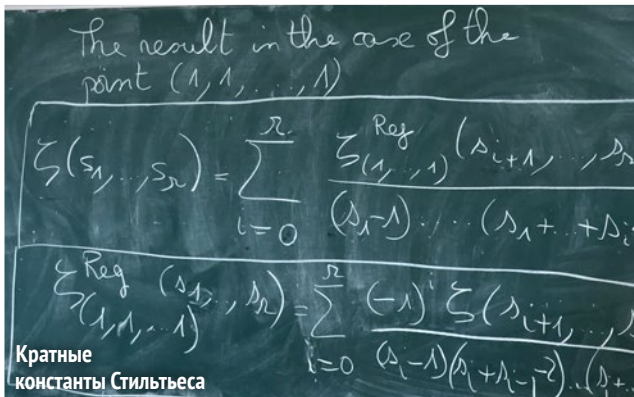 The result in the case of the
point (1,1,...,1)
ζ(s_1,..,s_r) = \sum_{i=0}^{r} \frac{ζ^{Reg}_{(1,...,1)} (s_{i+1},...,s_r}{(s_1-1)....(s_1+..+s_i-}
ζ^{Reg}_{(1,1,...1)} (s_1,..,s_r) = \sum_{i=0}^{r} \frac{(-1)^i ζ(s_{i+1},...,s}{(s_i-1)(s_i+s_{i-1}-2)...(s_i+..}
Кратные
константы Стилтьеса